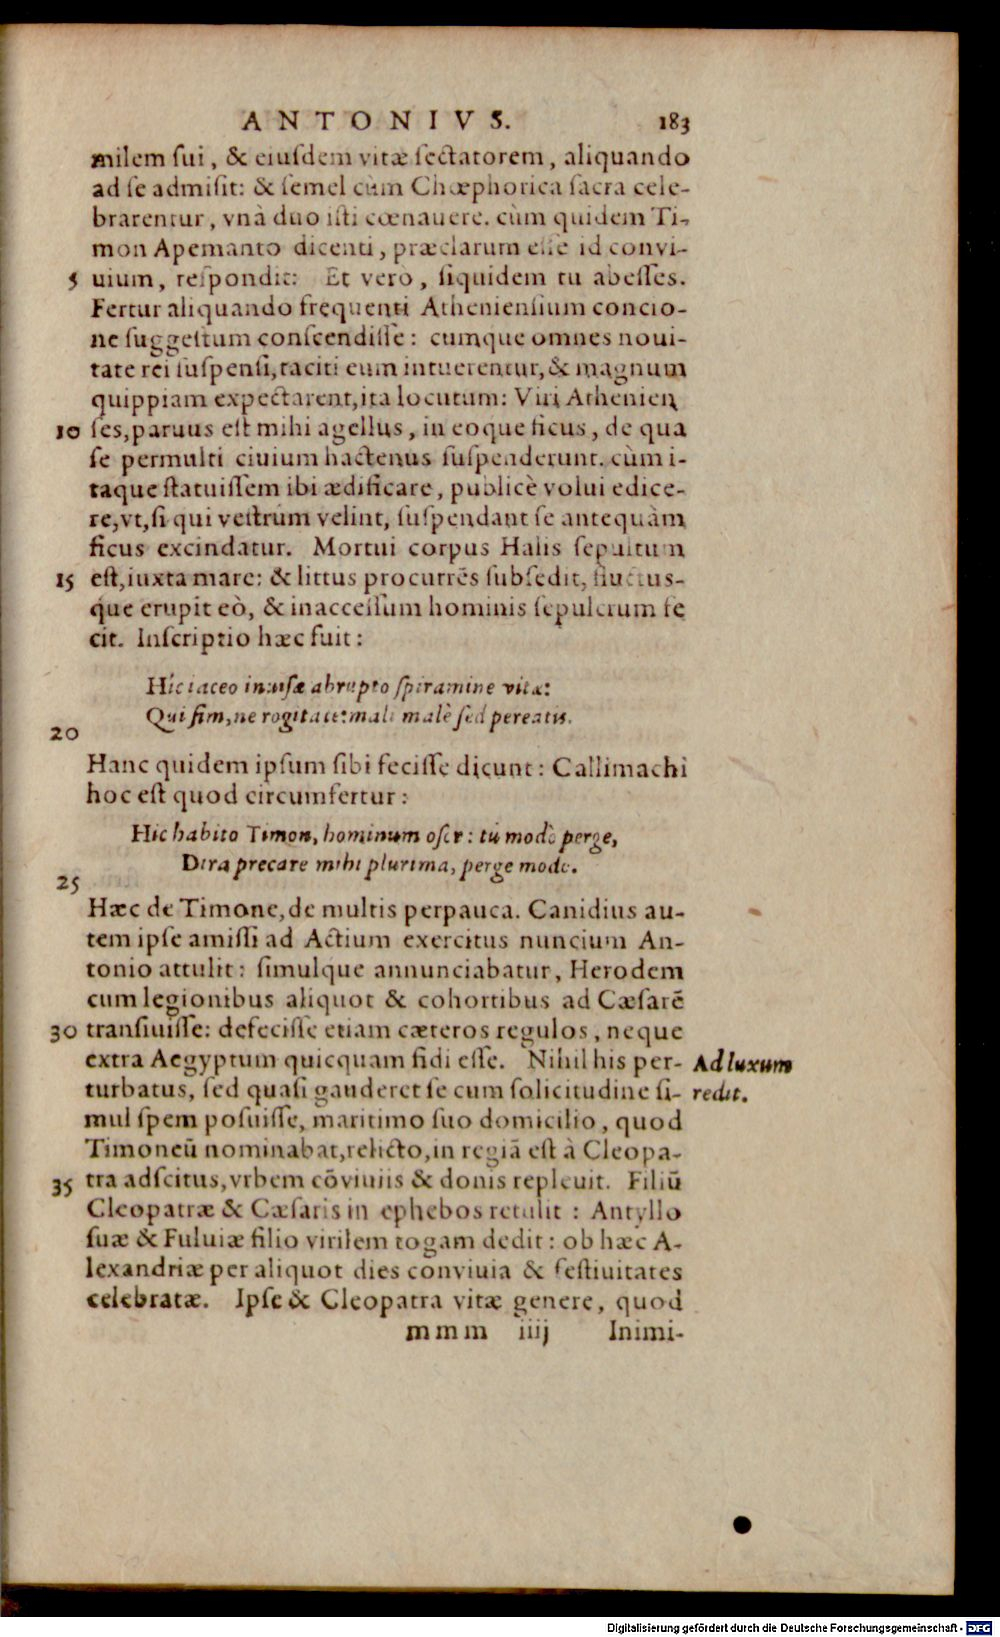 ANTONIVS. 183
milem sui, & eiusdem vitæ sectatorem, aliquando
ad se admisit: & semel cùm Chœphorica sacra cele-
brarentur, vnà duo isti cœnauere. cùm quidem Ti-
mon Apemanto dicenti, præclarum esse id conui-
5 uium, respondit: Et vero, siquidem tu abesses.
Fertur aliquando frequenti Atheniensium concio-
ne suggestum conscendisse: cumque omnes noui-
tate rei suspensi, taciti eum intuerentur, & magnum
quippiam expectarent, ita locutum: Viri Athenien
10 ses, paruus est mihi agellus, in eoque ficus, de qua
se permulti ciuium hactenus suspenderunt. cùm i-
taque statuissem ibi ædificare, publicè volui edice-
re, vt, si qui vestrûm velint, suspendant se antequàm
ficus excindatur. Mortui corpus Halis sepultum
15 est, iuxta mare: & littus procurrēs subsedit, fluctus-
que erupit eò, & inaccessum hominis sepulcrum fe
cit. Inscriptio hæc fuit:
Hic iaceo inuisæ abrupto spiramine vitæ:
Qui sim, ne rogitate: mali malè sed pereatis.
20
Hanc quidem ipsum sibi fecisse dicunt: Callimachi
hoc est quod circumfertur:
Hic habito Timon, hominum osor: tu modò perge,
Dira precare mihi plurima, perge modo.
25
Hæc de Timone, de multis perpauca. Canidius au-
tem ipse amissi ad Actium exercitus nuncium An-
tonio attulit: simulque annunciabatur, Herodem
cum legionibus aliquot & cohortibus ad Cæsarē
30 transiuisse: defecisse etiam cæteros regulos, neque
extra Aegyptum quicquam fidi esse. Nihil his per- Ad luxum
turbatus, sed quasi gauderet se cum solicitudine si- redit.
mul spem posuisse, maritimo suo domicilio, quod
Timoneū nominabat, relicto, in regiā est à Cleopa-
35 tra adscitus, vrbem cōviuiis & donis repleuit. Filiū
Cleopatræ & Cæsaris in ephebos retulit: Antyllo
suæ & Fuluiæ filio virilem togam dedit: ob hæc A-
lexandriæ per aliquot dies conviuia & festiuitates
celebratæ. Ipse & Cleopatra vitæ genere, quod
mmm iiij Inimi-
Digitalisierung gefördert durch die Deutsche Forschungsgemeinschaft - DFG